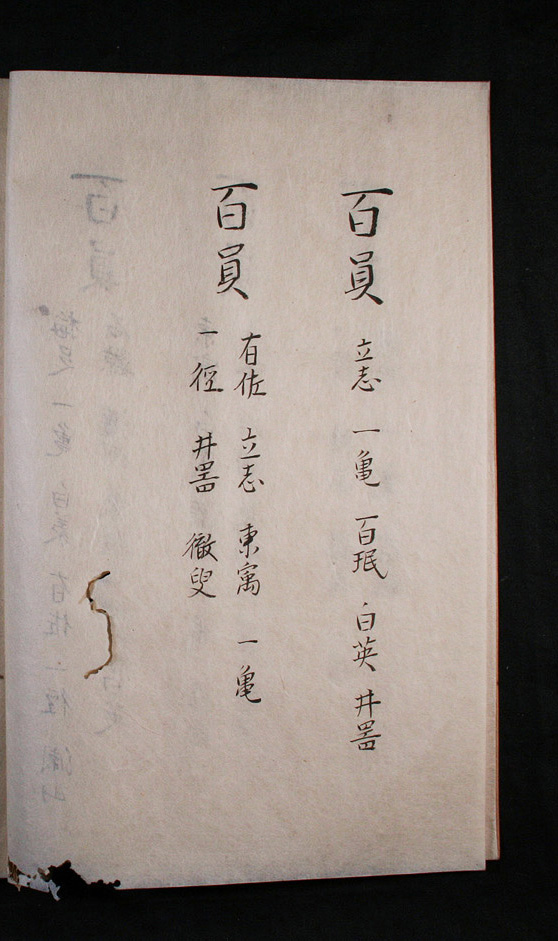 百員 立志 一亀 百珉 白英 井噐
百員 有佐 立志 東寓 一亀
一径 井噐 徹叟